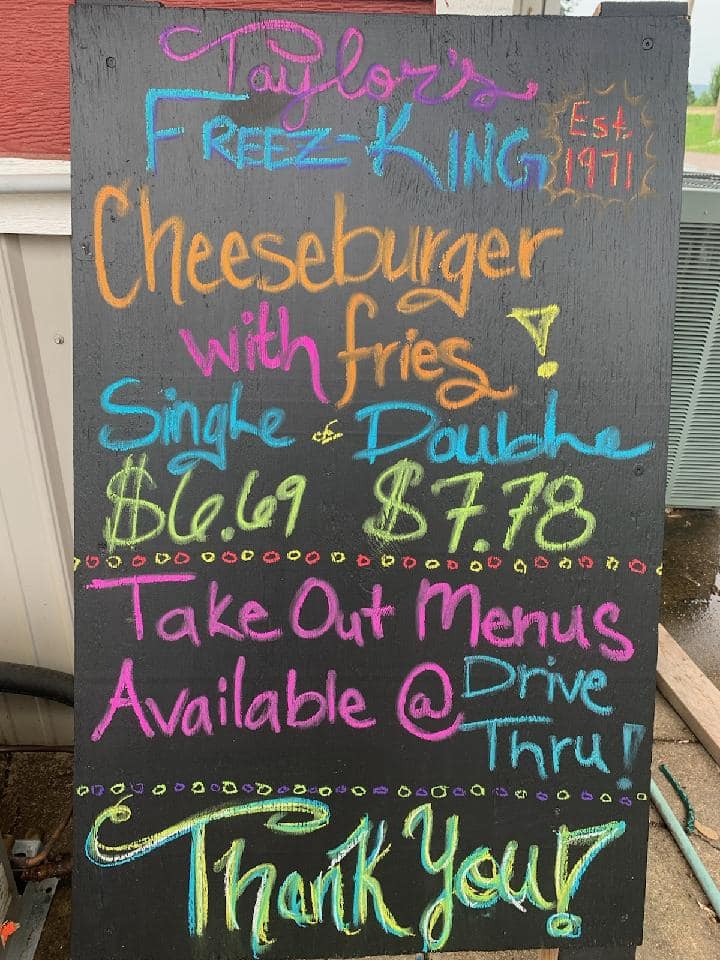 Taylor's
FREEZ-KING
Est.
1971
Cheeseburger
with fries!
Single & Double
$6.69 $7.78
Take Out Menus
Available @ Drive
Thru!
Thank You!